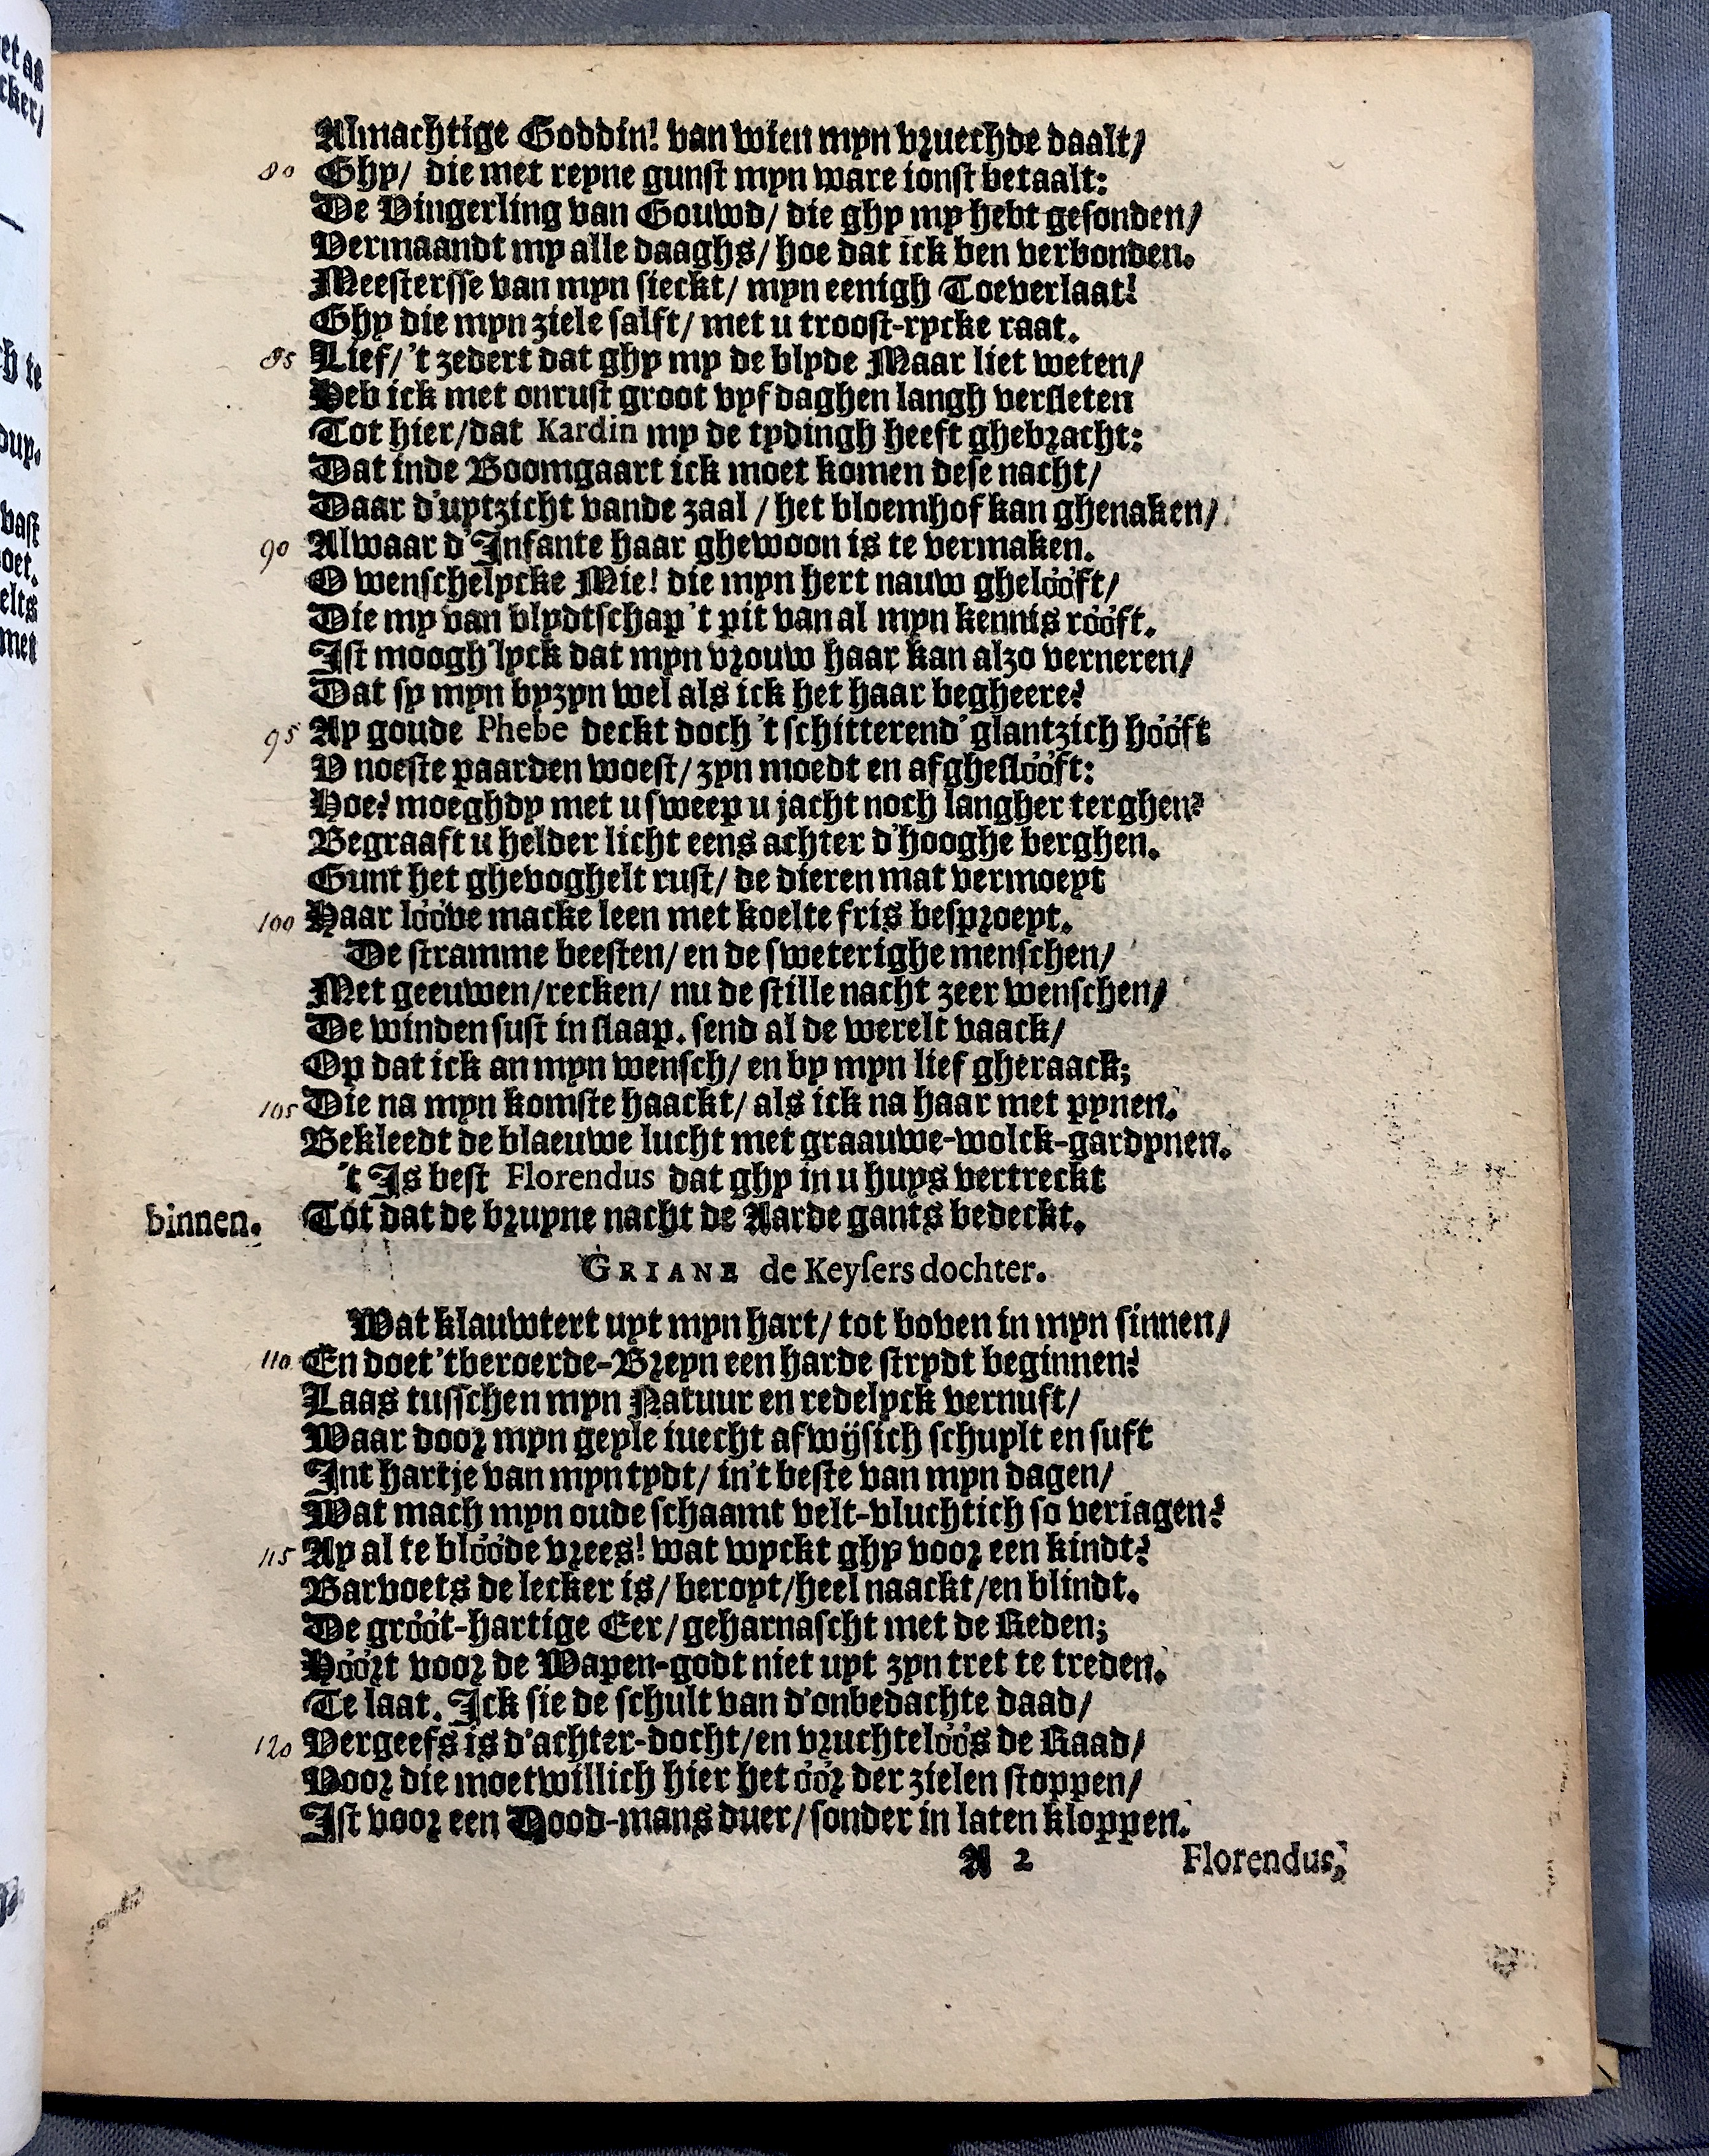 Almachtige Goddin! van wien myn vruechde daalt/
80 Ghy/ die met reyne gunst myn ware ionst betaalt:
De Vingerling van Gouwd/ die ghy my hebt gesonden/
Vermaandt my alle daaghs/ hoe dat ick ben verbonden.
Meestersse van myn sieckt/ myn eenigh Toeverlaat!
Ghy die myn ziele salft/ met u troost-rycke raat.
85 Lief/ 't zedert dat ghy my de blyde Maar liet weten/
Heb ick met onrust groot vyf daghen langh versleten
Tot hier/ dat Kardin my de tydingh heeft ghebracht:
Dat inde Boomgaart ick moet komen dese nacht/
Daar d'uytzicht vande zaal / het bloemhof kan ghenaken/
90 Alwaar d'Infante haar ghewoon is te vermaken.
O wenschelycke Mie! die myn hert nauw ghelóóft/
Die my van blydtschap 't pit van al myn kennis róóft.
Ist moogh'lyck dat myn vrouw haar kan alzo verneren/
Dat sy myn byzyn wel als ick het haar begheere?
95 Ay goude Phebe deckt doch 't schitterend' glantzich hóóft
V noeste paarden woest/ zyn moedt en afgheslóóft:
Hoe? moeghdy met u sweep u jacht noch langher terghen?
Begraaft u helder licht eens achter d'hooghe berghen.
Gunt het ghevoghelt rust/ de dieren mat vermoeyt
100 Haar lóóve macke leen met koelte fris besproeyt.
De stramme beesten/ en de sweterighe menschen/
Met geeuwen/ recken/ nu de stille nacht zeer wenschen/
De winden sust in slaap. send al de werelt vaack/
Op dat ick an myn wensch/ en by myn lief gheraack;
105 Die na myn komste haackt/ als ick na haar met pynen.
Bekleedt de blaeuwe lucht met graauwe-wolck-gardynen.
't Is best Florendus dat ghy in u huys vertreckt
binnen. Tot dat de bruyne nacht de Aarde gants bedeckt.
GRIANE de Keysers dochter.
Wat klauwtert uyt myn hart/ tot boven in myn sinnen/
110 En doet 'tberoerde-Breyn een harde strydt beginnen?
Laas tusschen myn Natuur en redelyck vernuft/
Waar door myn geyle iuecht afwijsich schuylt en suft
Int hartje van myn tydt/ in't beste van myn dagen/
Wat mach myn oude schaamt velt-vluchtich so veriagen?
115 Ay al te blóóde vrees! wat wyckt ghy voor een kindt?
Barvoets de lecker is/ beroyt/ heel naackt/ en blindt.
De gróót-hartige Eer/ geharnascht met de Reden;
Hóórt voor de Wapen-godt niet uyt zyn tret te treden.
Te laat. Ick sie de schult van d'onbedachte daad/
120 Vergeefs is d'achter-docht/ en vruchtelóós de Raad/
Voor die moetwillich hier het óór der zielen stoppen/
Ist voor een Dood-mans duer/ sonder in laten kloppen.
A 2 Florendus,